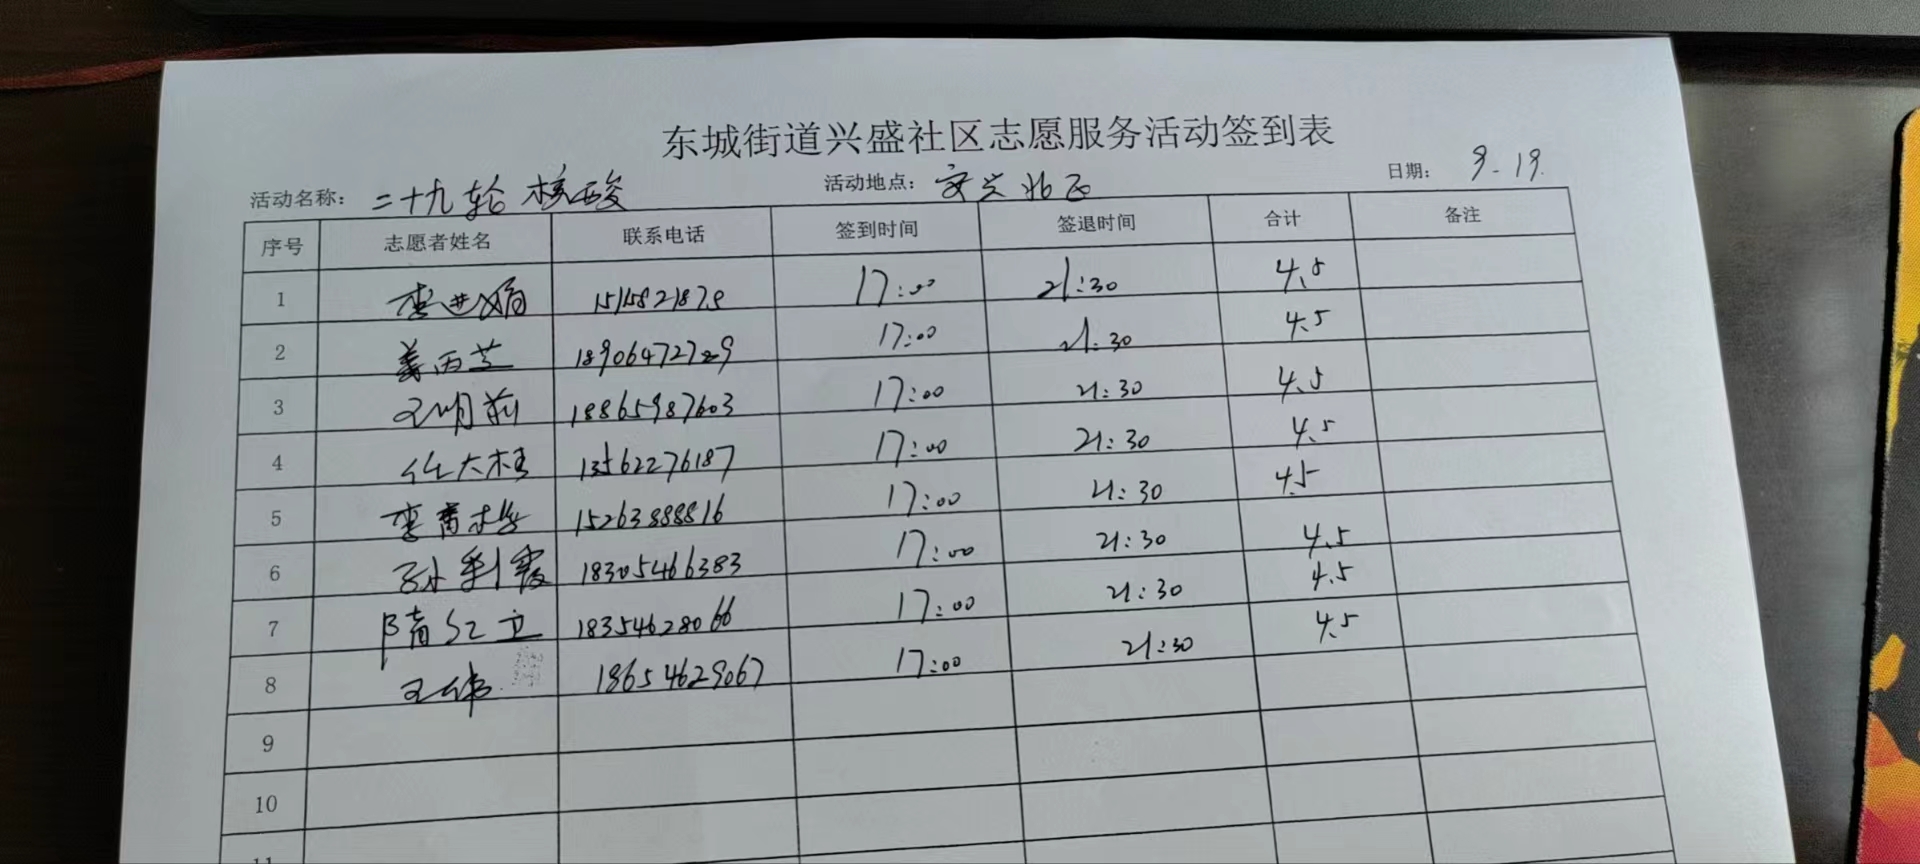 东城街道兴盛社区志愿服务活动签到表
活动名称: 二十九轮核酸 活动地点: 安兴北区 日期: 9.19.
序号 志愿者姓名 联系电话 签到时间 签退时间 合计 备注
1 李进娟 17:00 21:30 4.5
2 姜丙芝 18906472729 17:00 21:30 4.5
3 王明莉 18865987603 17:00 21:30 4.5
4 任大桂 13562276187 17:00 21:30 4.5
5 15263888816 17:00 21:30 4.5
6 孙利霞 18305466383 17:00 21:30 4.5
7 隋红卫 18354628066 17:00 21:30 4.5
8 王伟 18654629067 17:00 21:30 4.5
9
10
11